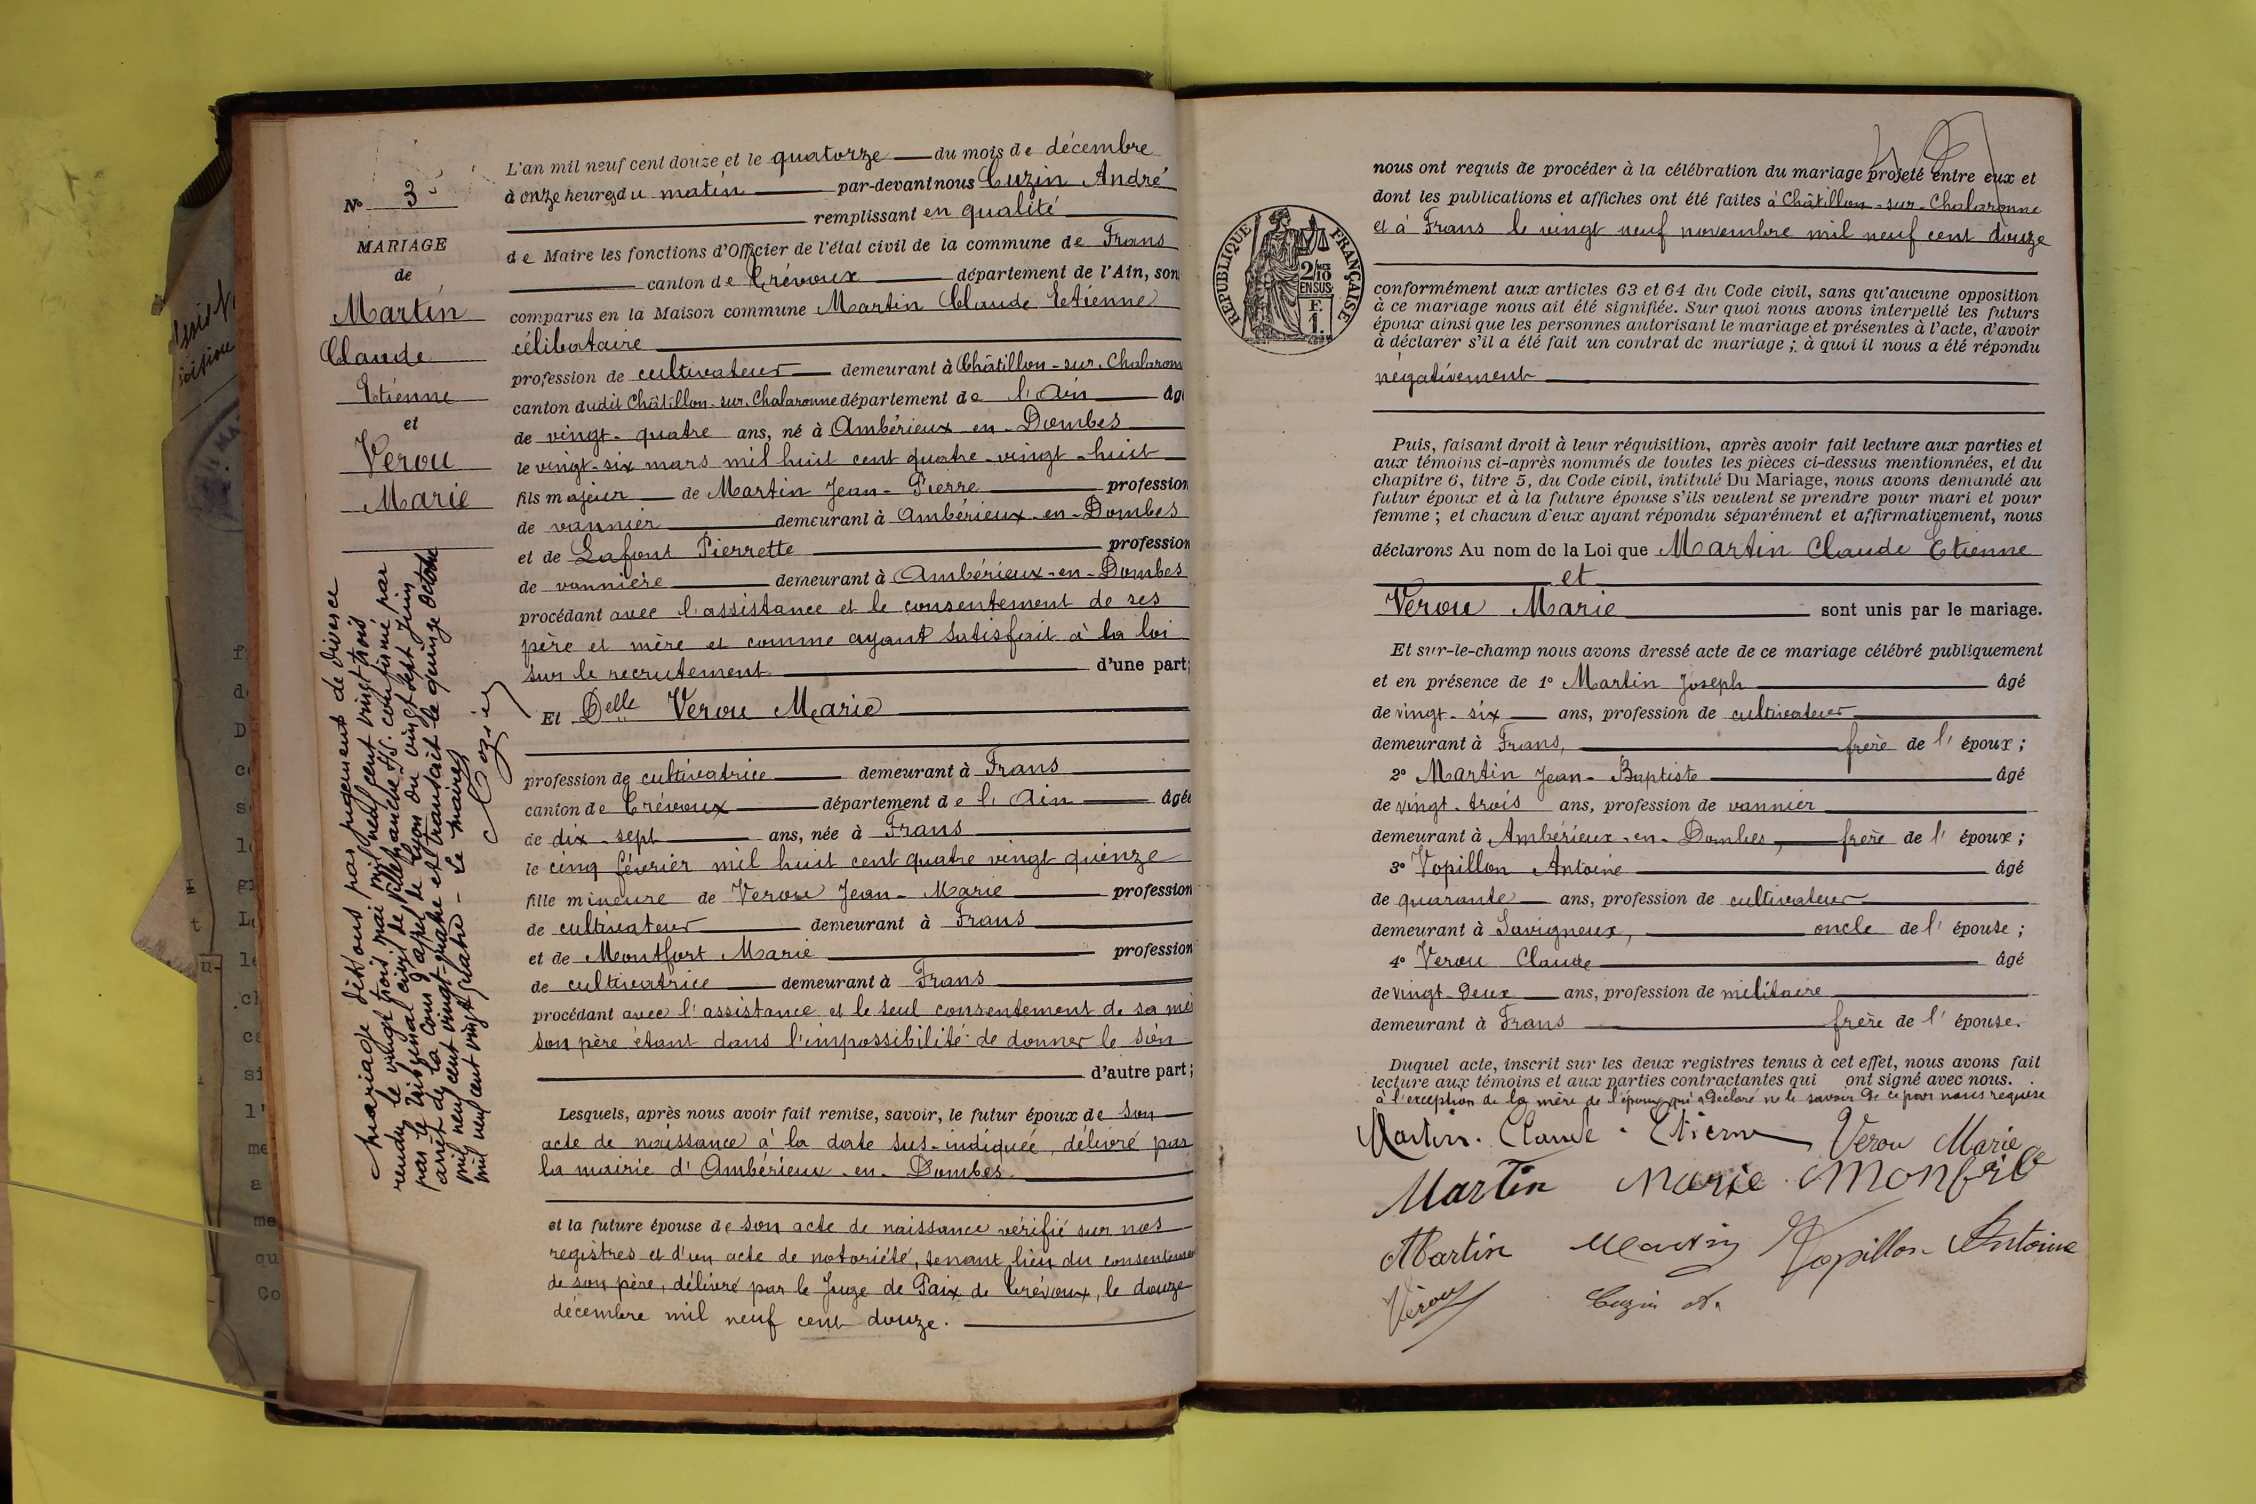 No 3
MARIAGE
de
Martin
Claude
Etienne
et
Verou
Marie
Mariage dissous par jugement de divorce
rendu le vingt trois mai mil neuf cent vingt-trois
par le tribunal civil de Villefranche confirmé par
arrêt de la cour d'appel de Lyon du vingt sept juin
mil neuf cent vingt-quatre et transcrit le quinze octobre
mil neuf cent vingt quatre - Le maire
L'an mil neuf cent douze et le quatorze du mois de décembre
à onze heures du matin par-devant nous Cuzin André
remplissant en qualité
de Maire les fonctions d'Officier de l'état civil de la commune de Frans
canton de Trévoux département de l'Ain, son
comparus en la Maison commune Martin Claude Etienne
célibataire
profession de cultivateur demeurant à Châtillon-sur-Chalaronne
canton dudit Châtillon-sur-Chalaronne département de l'Ain âgé
de vingt-quatre ans, né à Ambérieux-en-Dombes
le vingt-six mars mil huit cent quatre-vingt-huit
fils majeur de Martin Jean-Pierre profession
de vannier demeurant à Ambérieux-en-Dombes
et de Lafont Pierrette profession
de vannière demeurant à Ambérieux-en-Dombes
procédant avec l'assistance et le consentement de ses
père et mère et comme ayant satisfait à la loi
sur le recrutement d'une part;
Et Delle Verou Marie
profession de cultivatrice demeurant à Frans
canton de Trévoux département de l'Ain âgée
de dix-sept ans, née à Frans
le cinq février mil huit cent quatre vingt quinze
fille mineure de Verou Jean-Marie profession
de cultivateur demeurant à Frans
et de Montfort Marie profession
de cultivatrice demeurant à Frans
procédant avec l'assistance et le seul consentement de sa mè
son père étant dans l'impossibilité de donner le sien
d'autre part;
Lesquels, après nous avoir fait remise, savoir, le futur époux de son
acte de naissance à la date sus-indiquée, délivré par
la mairie d'Ambérieux-en-Dombes.
et la future épouse de son acte de naissance vérifié sur nos
registres et d'un acte de notoriété, tenant lieu du consentement
de son père, délivré par le Juge de Paix de Trévoux, le douze
décembre mil neuf cent douze.
RÉPUBLIQUE FRANÇAISE
2/10 EN SUS
F. 1.
nous ont requis de procéder à la célébration du mariage projeté entre eux et
dont les publications et affiches ont été faites à Châtillon-sur-Chalaronne
et à Frans le vingt neuf novembre mil neuf cent douze
conformément aux articles 63 et 64 du Code civil, sans qu'aucune opposition
à ce mariage nous ait été signifiée. Sur quoi nous avons interpellé les futurs
époux ainsi que les personnes autorisant le mariage et présentes à l'acte, d'avoir
à déclarer s'il a été fait un contrat de mariage ; à quoi il nous a été répondu
négativement
Puis, faisant droit à leur réquisition, après avoir fait lecture aux parties et
aux témoins ci-après nommés de toutes les pièces ci-dessus mentionnées, et du
chapitre 6, titre 5, du Code civil, intitulé Du Mariage, nous avons demandé au
futur époux et à la future épouse s'ils veulent se prendre pour mari et pour
femme ; et chacun d'eux ayant répondu séparément et affirmativement, nous
déclarons Au nom de la Loi que Martin Claude Etienne
et
Verou Marie sont unis par le mariage.
Et sur-le-champ nous avons dressé acte de ce mariage célébré publiquement
et en présence de 1º Martin Joseph âgé
de vingt-six ans, profession de cultivateur
demeurant à Frans, frère de l'époux ;
2º Martin Jean-Baptiste âgé
de vingt-trois ans, profession de vannier
demeurant à Ambérieux-en-Dombes, frère de l'époux ;
3º Vopillon Antoine âgé
de quarante ans, profession de cultivateur
demeurant à Savigneux, oncle de l'épouse ;
4º Verou Claude âgé
de vingt-deux ans, profession de militaire
demeurant à Frans frère de l'épouse.
Duquel acte, inscrit sur les deux registres tenus à cet effet, nous avons fait
lecture aux témoins et aux parties contractantes qui ont signé avec nous.
à l'exception de la mère de l'époux qui a déclaré ne le savoir de ce par nous requise
Martin. Claude. Etienne Verou Marie
Martin Marie Monfort
Martin Martin Vopillon Antoine
Vérou Cuzin A.